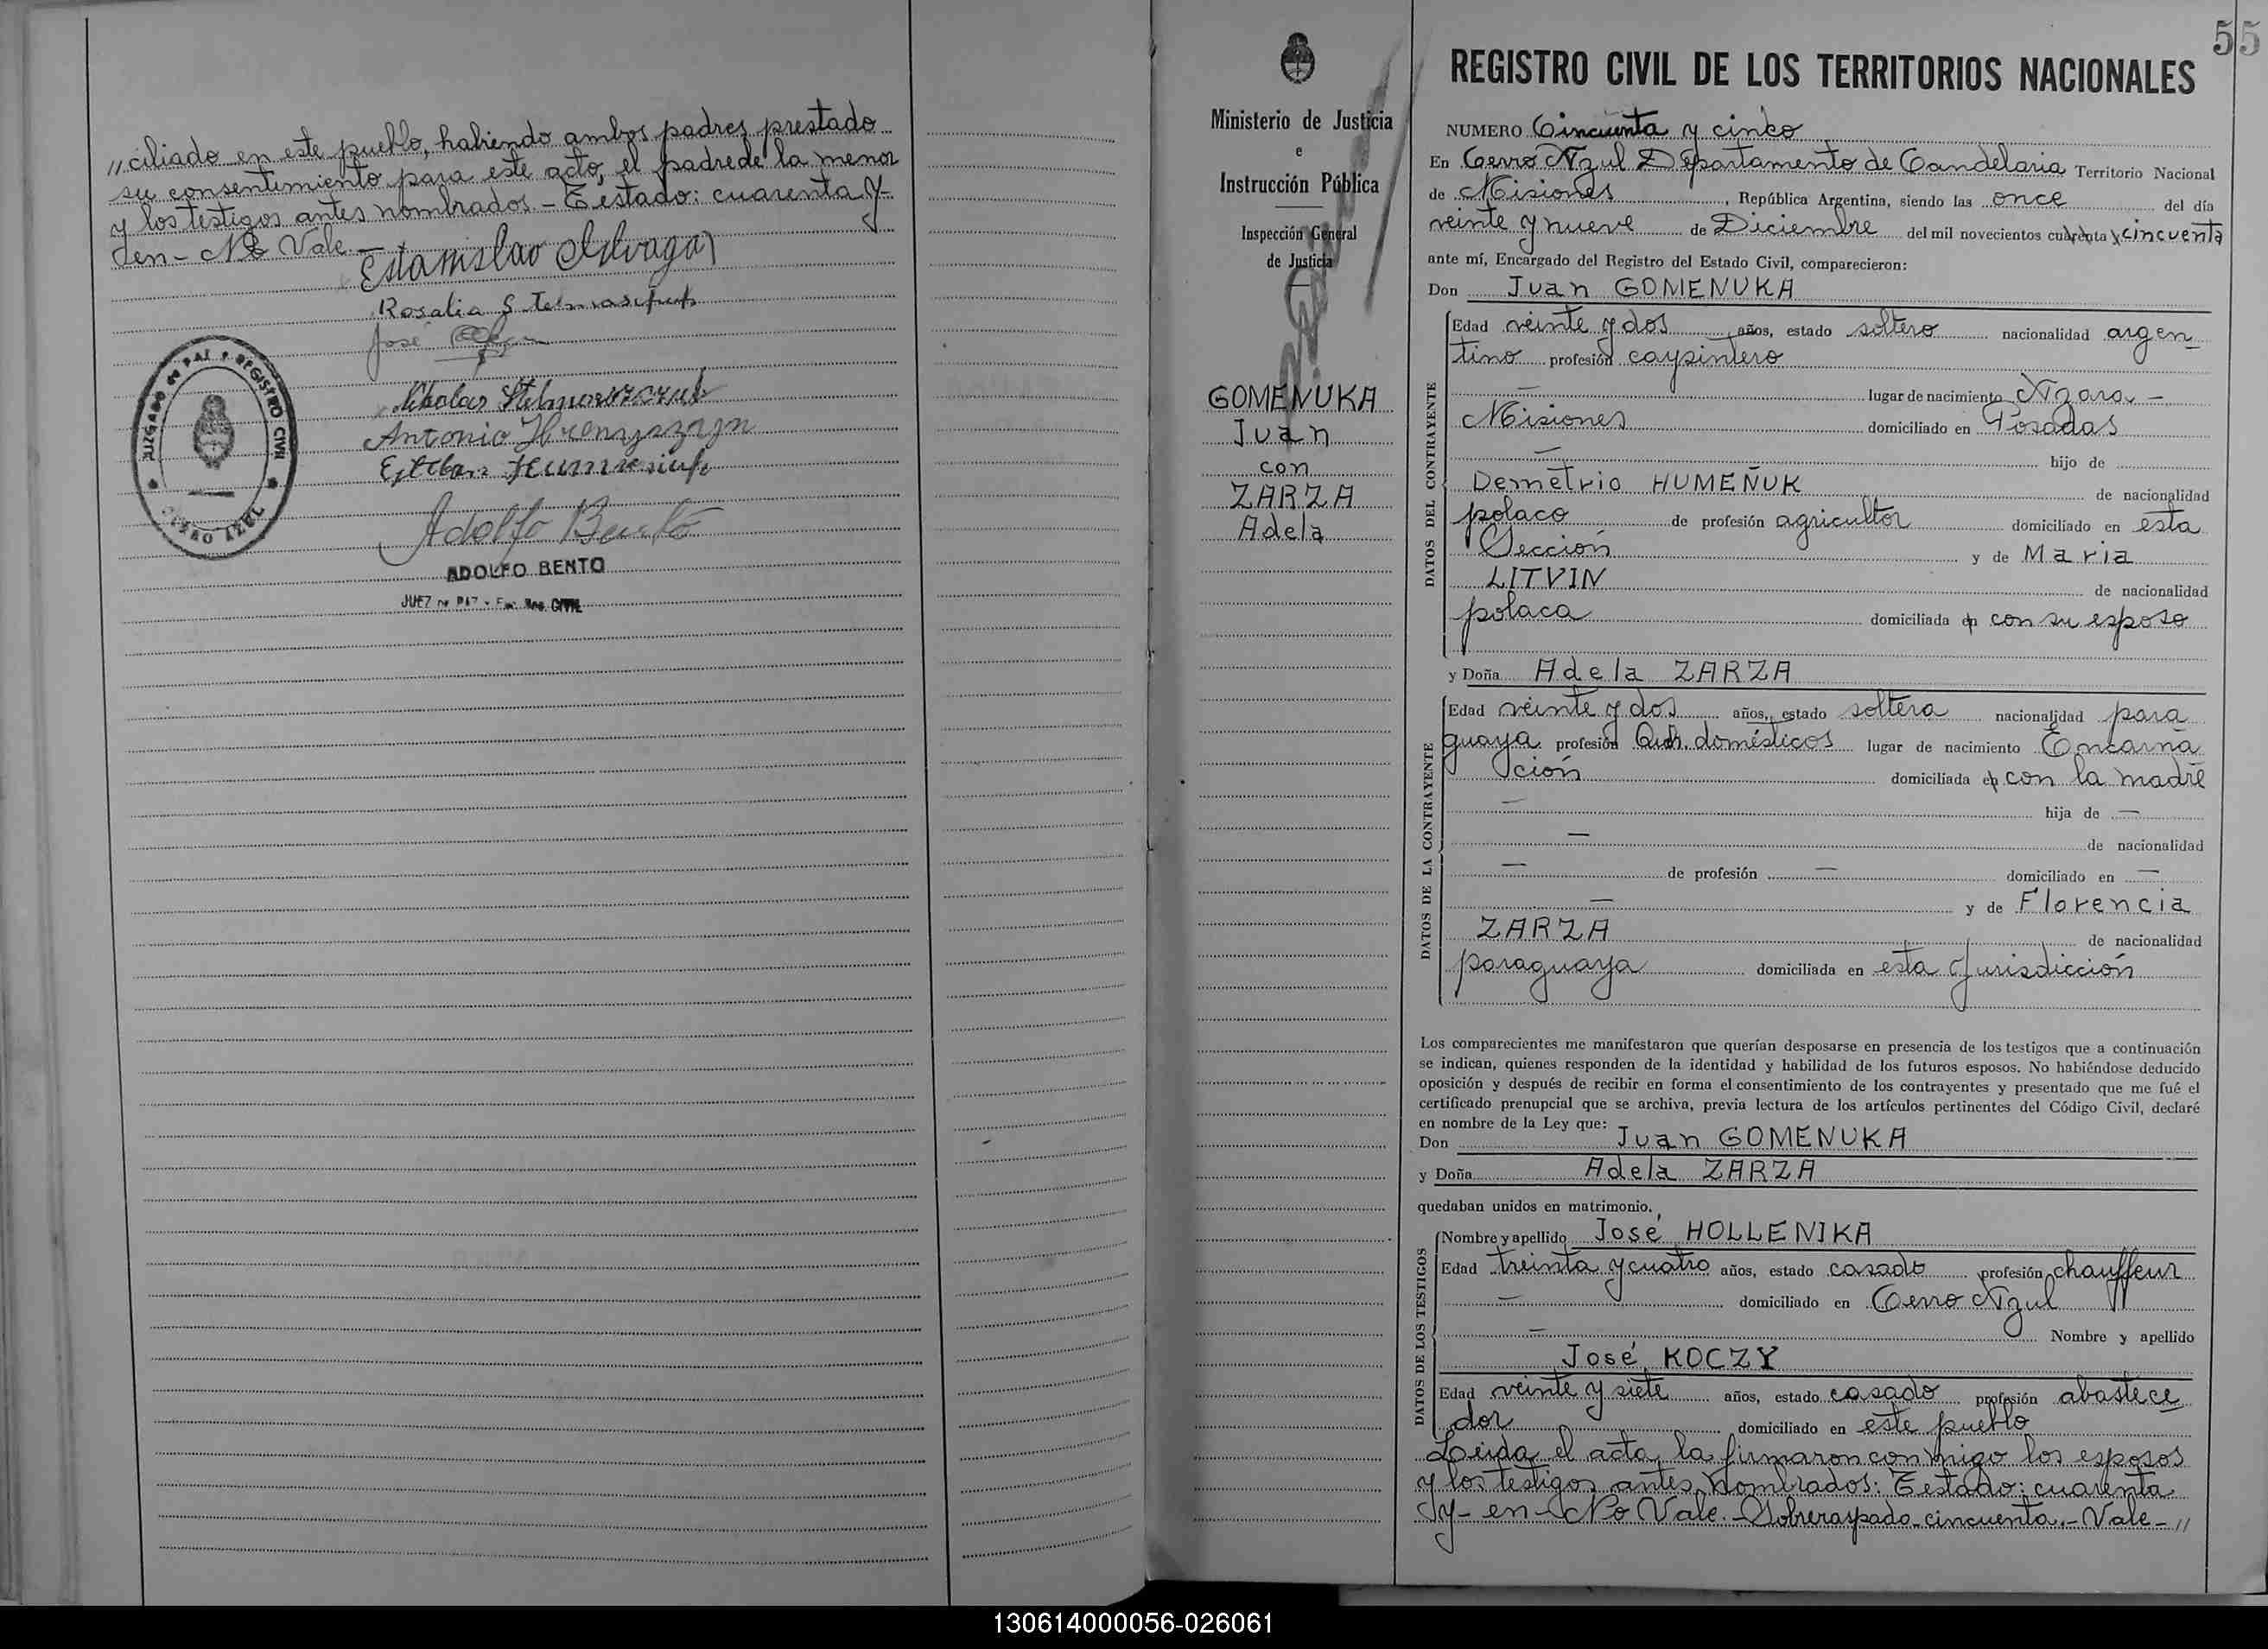 // ciliado en este pueblo, habiendo ambos padres prestado
su consentimiento para este acto, el padre de la menor
y los testigos antes nombrados - Testado: cuarenta y-
en - No Vale -
Estanislao
Rosalia S.
José
JUZGADO de PAZ Y REGISTRO CIVIL
CERRO AZUL
Nikolas
Antonio
Esteban
Adolfo Bento
ADOLFO BENTO
JUEZ de PAZ y Enc. Reg. CIVIL
Ministerio de Justicia
e
Instrucción Pública
Inspección General
de Justicia
GOMENUKA
Juan
con
ZARZA
Adela
55
REGISTRO CIVIL DE LOS TERRITORIOS NACIONALES
NUMERO Cincuenta y cinco
En Cerro Azul Departamento de Candelaria Territorio Nacional
de Misiones, República Argentina, siendo las once del día
veinte y nueve de Diciembre del mil novecientos cuarenta y cincuenta
ante mí, Encargado del Registro del Estado Civil, comparecieron:
Don Juan GOMENUKA
DATOS DEL CONTRAYENTE
Edad veinte y dos años, estado soltero nacionalidad argen-
tino profesión carpintero
— lugar de nacimiento Azara -
Misiones domiciliado en Posadas
— hijo de
Demetrio HUMEÑUK de nacionalidad
polaco de profesión agricultor domiciliado en esta
Sección y de Maria
LITVIN de nacionalidad
polaca domiciliada en con su esposo
y Doña Adela ZARZA
DATOS DE LA CONTRAYENTE
Edad veinte y dos años, estado soltera nacionalidad para
guaya profesión Queh. domésticos lugar de nacimiento Encarna
ción domiciliada en con la madre
— hija de —
— de nacionalidad
— de profesión — domiciliado en —
— y de Florencia
ZARZA de nacionalidad
paraguaya domiciliada en esta Jurisdicción
Los comparecientes me manifestaron que querían desposarse en presencia de los testigos que a continuación
se indican, quienes responden de la identidad y habilidad de los futuros esposos. No habiéndose deducido
oposición y después de recibir en forma el consentimiento de los contrayentes y presentado que me fué el
certificado prenupcial que se archiva, previa lectura de los artículos pertinentes del Código Civil, declaré
en nombre de la Ley que:
Don Juan GOMENUKA
y Doña Adela ZARZA
quedaban unidos en matrimonio.
DATOS DE LOS TESTIGOS
Nombre y apellido José HOLLENIKA
Edad treinta y cuatro años, estado casado profesión chauffeur
— domiciliado en Cerro Azul
— Nombre y apellido
José KOCZY
Edad veinte y siete años, estado casado profesión abastece
dor domiciliado en este pueblo
Leida el acta, la firmaron conmigo los esposos
y los testigos antes nombrados: Testado: cuarenta
y - en - No Vale. - Sobreraspado - cincuenta. - Vale - //
130614000056-026061